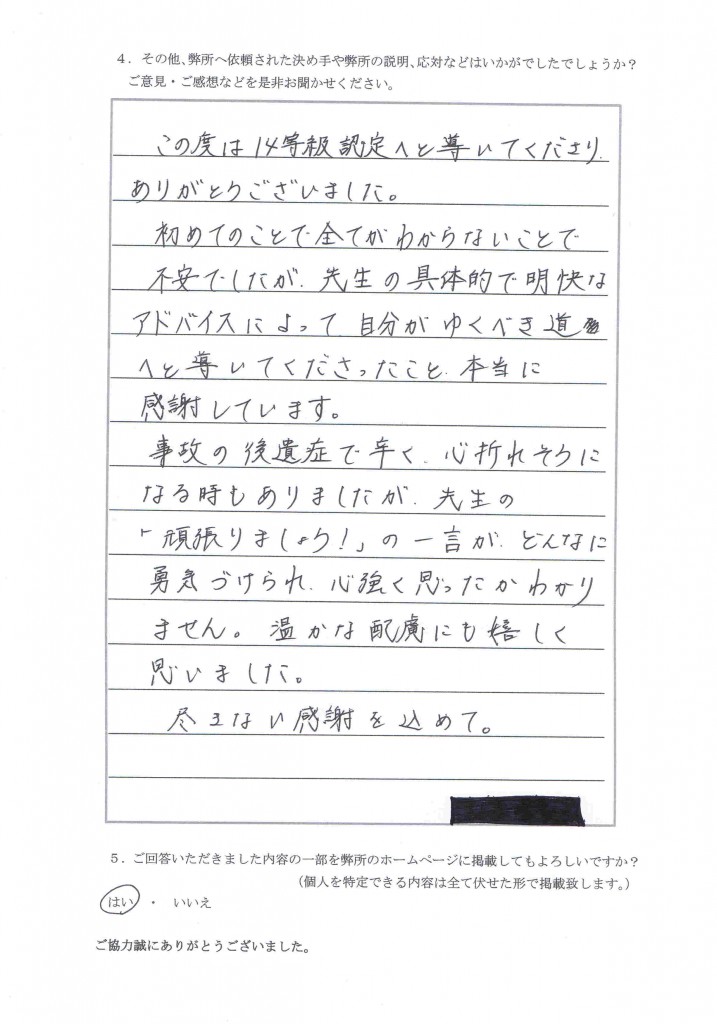 ４．その他、弊所へ依頼された決め手や弊所の説明、応対などはいかがでしたでしょうか？
ご意見・ご感想などを是非お聞かせください。
この度は14等級認定へと導いてくださり、
ありがとうございました。
初めてのことで全てがわからないことで
不安でしたが、先生の具体的で明快な
アドバイスによって、自分がゆくべき道
へと導いてくださったこと、本当に
感謝しています。
事故の後遺症で辛く、心折れそうに
なる時もありましたが、先生の
「頑張りましょう！」の一言が、どんなに
勇気づけられ、心強く思ったかわかり
ません。温かな配慮にも嬉しく
思いました。
尽きない感謝を込めて。
５．ご回答いただきました内容の一部を弊所のホームページに掲載してもよろしいですか？
（個人を特定できる内容は全て伏せた形で掲載致します。）
はい ・ いいえ
ご協力誠にありがとうございました。